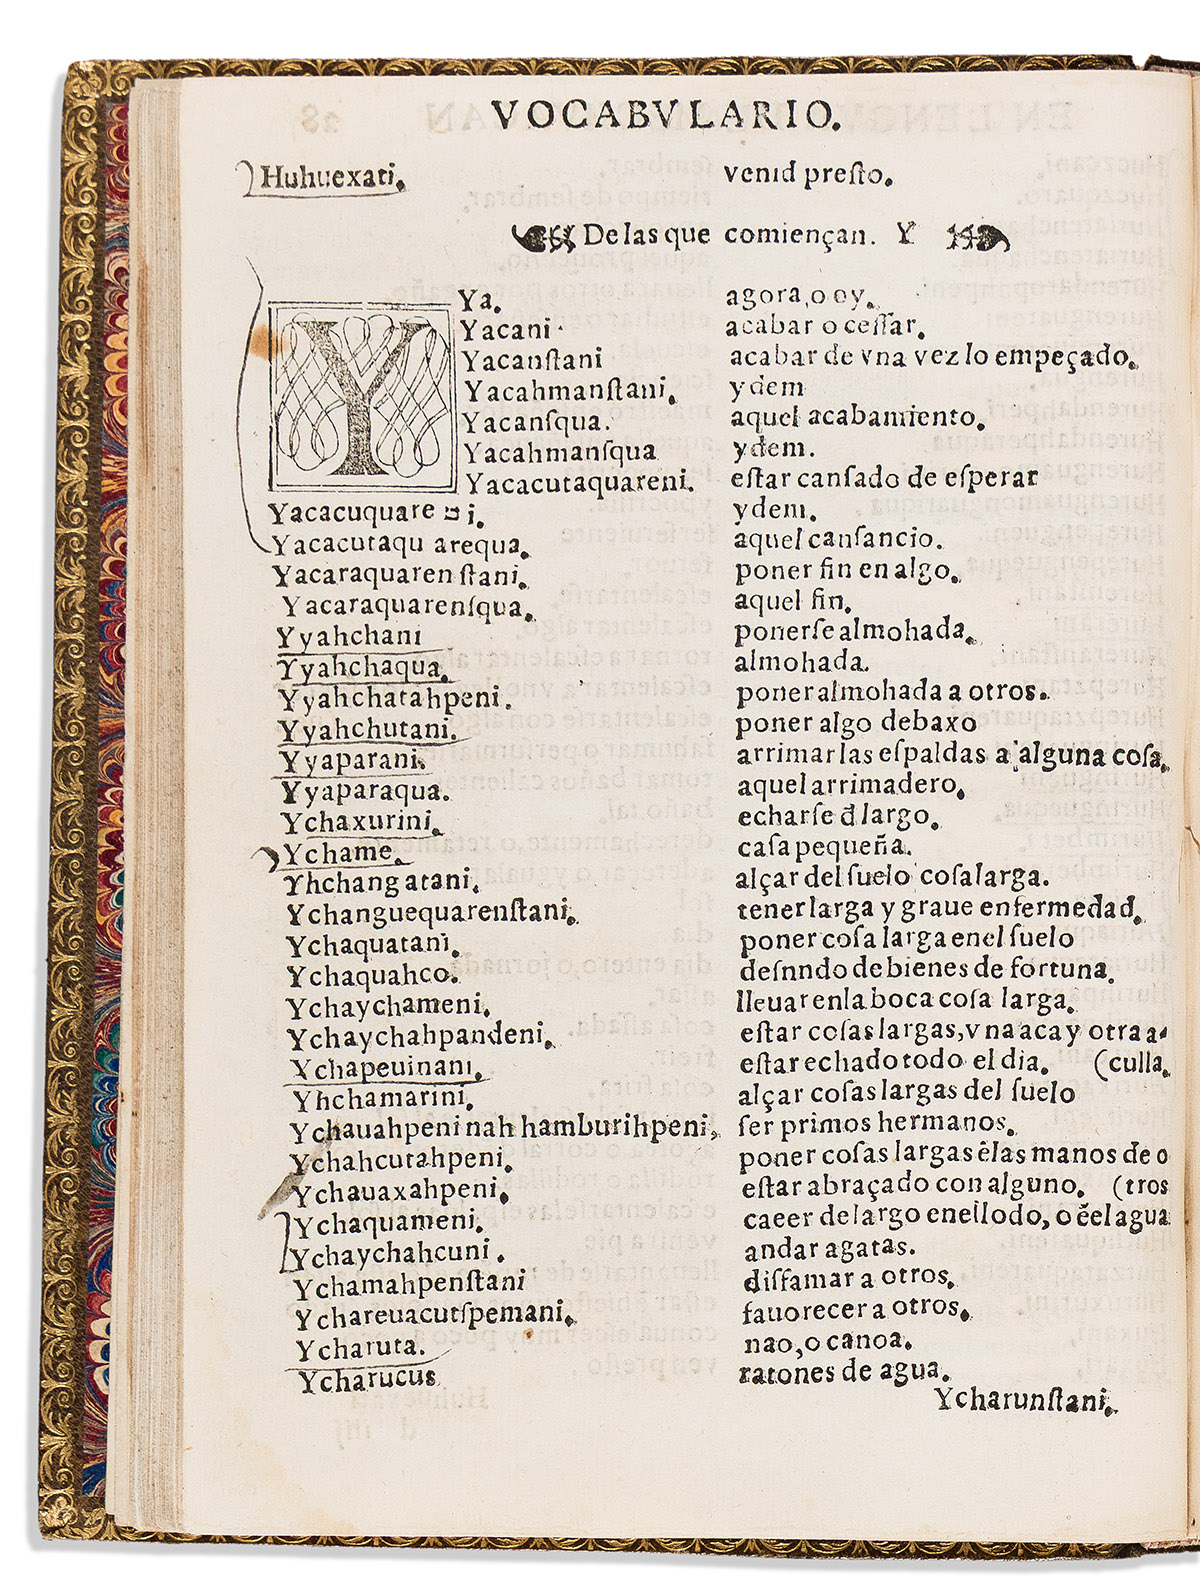 VOCABVLARIO.
Huhuexati. venid presto.
De las que comiençan. Y
Ya. agora, o oy.
Yacani. acabar o cessar.
Yacanstani acabar de vna vez lo empeçado.
Yacahmanstani. ydem
Yacansqua. aquel acabamiento.
Yacahmansqua ydem.
Yacacutaquareni. estar cansado de esperar
Yacacuquare ni. ydem.
Yacacutaqu arequa. aquel cansancio.
Yacaraquaren stani. poner fin en algo.
Yacaraquarensqua. aquel fin.
Yyahchani ponerse almohada.
Yyahchaqua. almohada.
Yyahchatahpeni. poner almohada a otros.
Yyahchutani. poner algo debaxo
Yyaparani. arrimar las espaldas a alguna cosa.
Yyaparaqua. aquel arrimadero.
Ychaxurini. echarse d̄ largo.
Ychame. casa pequeña.
Yhchangatani. alçar del suelo cosa larga.
Ychanguequarenstani. tener larga y graue enfermedad.
Ychaquatani. poner cosa larga enel suelo
Ychaquahco. desnndo de bienes de fortuna.
Ychaychameni. lleuar enla boca cosa larga.
Ychaychahpandeni. estar cosas largas, vna aca y otra a-
Ychapeuinani. estar echado todo el dia. (culla.
Yhchamarini. alçar cosas largas del suelo
Ychauahpeni nah hamburihpeni, ser primos hermanos.
Ychahcutahpeni. poner cosas largas ēlas manos de o
Ychauaxahpeni. estar abraçado con alguno. (tros
Ychaquameni. caeer de largo enel lodo, o ēel agua
Ychaychahcuni. andar a gatas.
Ychamahpenstani disfamar a otros.
Ychareuacutspemani. fauorecer a otros.
Ycharuta. nao, o canoa.
Ycharucus ratones de agua.
Ycharunstani.